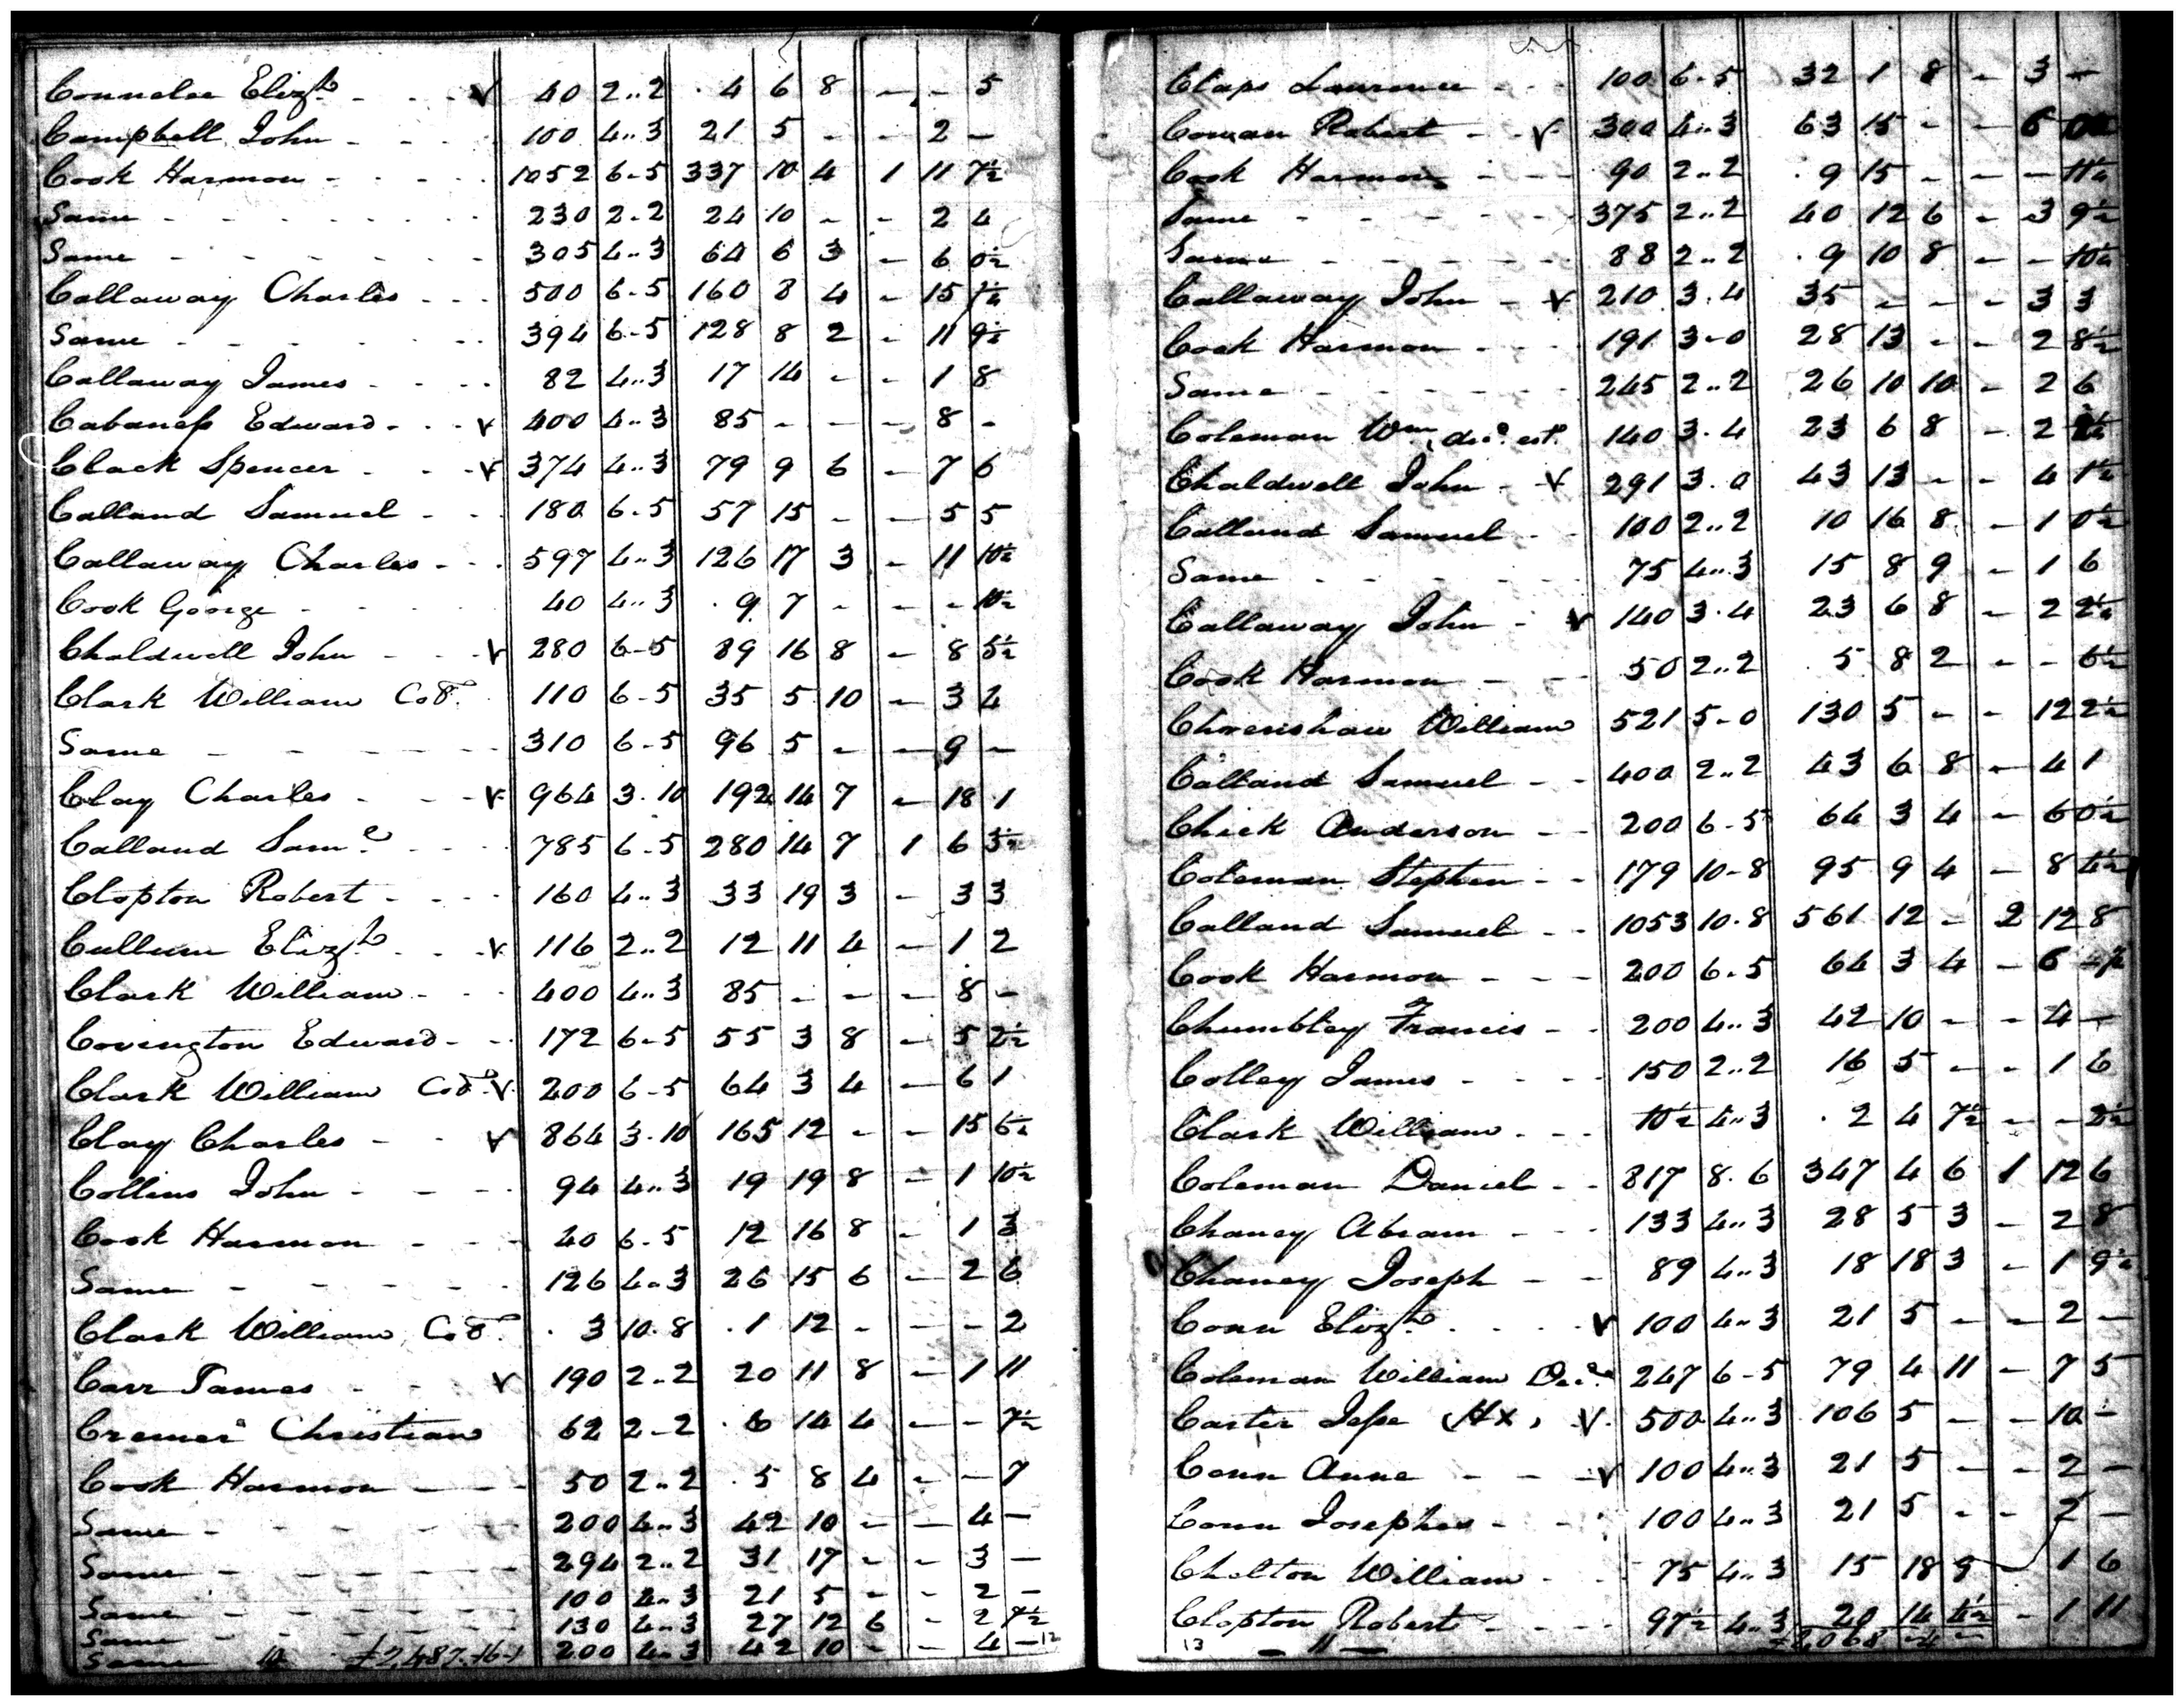 Connelee Elizth - - - v 40 2..2 4 6 8 - - 5
Campbell John - - - 100 4..3 21 5 - - 2 -
Cook Harmon - - - - 1052 6-5 337 10 4 1 11 7½
Same - - - - - - - 230 2-2 24 10 - - 2 4
Same - - - - - - 305 4..3 64 6 3 - 6 0½
Callaway Charles - - - 500 6-5 160 8 4 - 15
Same - - - - - - 394 6-5 128 8 2 - 11 9½
Callaway James - - - - 82 4..3 17 14 - - 1 8
Cabaness Edward - - - v 400 4..3 85 - - - 8 -
Clack Spencer - - - v 374 4..3 79 9 6 - 7 6
Calland Samuel - - 180 6-5 57 15 - - 5 5
Callaway Charles - - - 597 4..3 126 17 3 - 11 10½
Cook George - - - - 40 4..3 9 7 - - - 10½
Chaldwell John - - - v 280 6-5 89 16 8 - 8 5½
Clark William Co8 110 6-5 35 5 10 - 3 4
Same - - - - - - 310 6-5 96 5 - - 9 -
Clay Charles - - - v 964 3.10 192 14 7 - 18 1
Calland Saml - - - - 785 6-5 280 14 7 1 6 3½
Clopton Robert - - - - 160 4..3 33 19 3 - 3 3
Cullum Elizth - - - v 116 2..2 12 11 4 - 1 2
Clark William - - - 400 4..3 85 - - - 8 -
Covington Edward - - 172 6-5 55 3 8 - 5 2½
Clark William Co8 v 200 6-5 64 3 4 - 6 1
Clay Charles - - v 864 3.10 165 12 - - 15 6½
Collins John - - - - 94 4..3 19 19 8 - 1 10½
Cook Harmon - - - 40 6-5 12 16 8 - 1 3
Same - - - - - - 126 4..3 26 15 6 - 2 6
Clark William Co8 3 10.8 1 12 - - - 2
Carr James - - - v 190 2..2 20 11 8 - 1 11
Cremer Christian 62 2-2 6 14 4 - - 7½
Cook Harmon - - - 50 2..2 5 8 4 - - 7
Same - - - - - 200 4..3 42 10 - - 4 -
Same - - - - - 294 2..2 31 17 - - 3 -
Same - - - - - 100 4..3 21 5 - - 2 -
Same - - - - - 130 4..3 27 12 6 - 2 7½
Same £2,487-16-1 200 4..3 42 10 - - 4 - 12
Claps Laurence - - - 100 6-5 32 1 8 - 3 -
Cowan Robert - - v 300 4..3 63 15 - - 6
Cook Harmon - - - 90 2..2 9 15 - - -
Same - - - - - - 375 2..2 40 12 6 - 3 9½
Same - - - - - - 88 2..2 9 10 8 - -
Callaway John - v 210 3.4 35 - - - 3 3
Cook Harmon - - - - 191 3-0 28 13 - - 2 8½
Same - - - - - - 245 2..2 26 10 10 - 2 6
Coleman Wm decd est. 140 3.4 23 6 8 - 2
Chaldwell John - v 291 3.0 43 13 - - 4 1½
Calland Samuel - - 100 2..2 10 16 8 - 1 0½
Same - - - - - 75 4..3 15 8 9 - 1 6
Callaway John - v 140 3.4 23 6 8 - 2
Cook Harmon - - 50 2..2 5 8 2 - - 6½
Chrenshaw William 521 5-0 130 5 - - 12 2½
Calland Samuel - - 400 2..2 43 6 8 - 4 1
Chick Anderson - - 200 6-5 64 3 4 - 6 0½
Coleman Stephen - - 179 10-8 95 9 4 - 8
Calland Samuel - - 1053 10.8 561 12 - 2 12 8
Cook Harmon - - - 200 6-5 64 3 4 - 6
Chumbley Francis - - 200 4..3 42 10 - - 4 -
Colley James - - - - 150 2..2 16 5 - - 1 6
Clark William - - - 10½ 4..3 2 4 7½ - - 2½
Coleman Daniel - - 817 8.6 347 4 6 1 12 6
Chaney Abram - - - 133 4..3 28 5 3 - 2 8
Chaney Joseph - - 89 4..3 18 18 3 - 1 9½
Conn Elizth - - - - v 100 4..3 21 5 - - 2 -
Coleman William Decd 247 6-5 79 4 11 - 7 5
Carter Jesse (HX) v 500 4..3 106 5 - - 10 -
Conn Anne - - - v 100 4..3 21 5 - - 2 -
Conn Josephus - - - 100 4..3 21 5 - - 2 -
Chelton William - - 75 4..3 15 18 9 - 1 6
Clopton Robert - - - - 97½ 4..3 20 14 4½ - 1 11
13 - 11 -